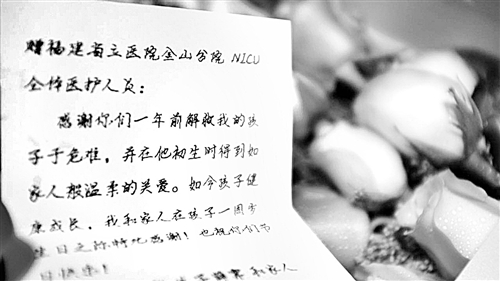 赠福建省立医院金山分院 NICU
全体医护人员：
感谢你们一年前解救我的孩
子于危难，并在他初生时得到如
家人般温柔的关爱。如今孩子健
康成长，我和家人在孩子一周岁
生日之际特此感谢！也祝你们节
日快乐！
家人